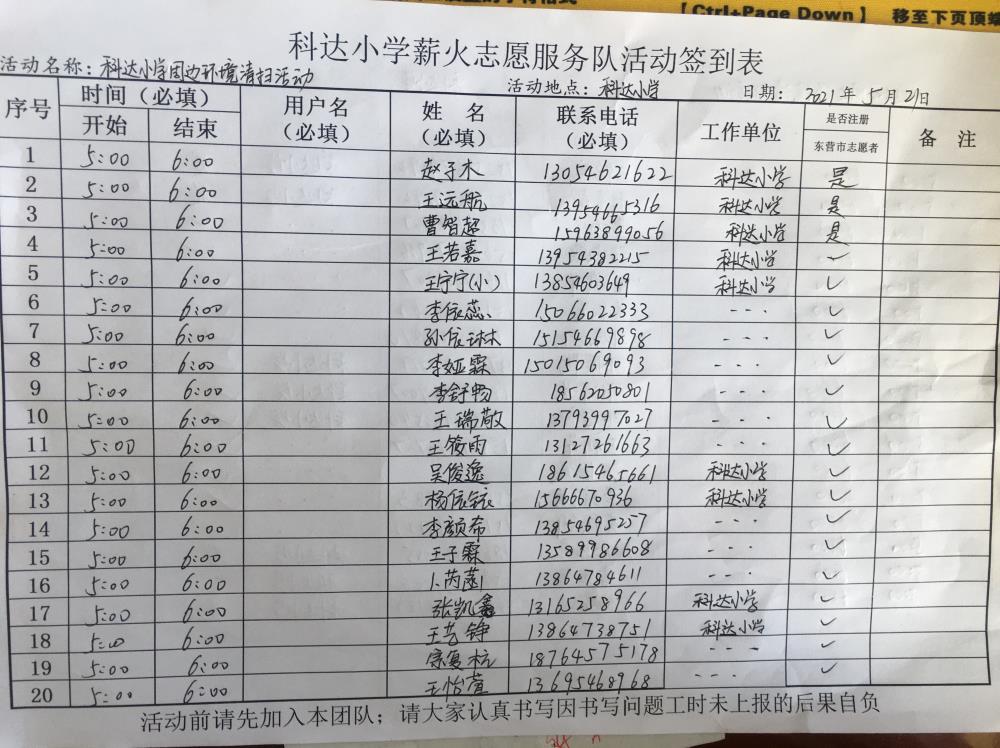 【Ctrl+Page Down】 移至下页顶
科达小学薪火志愿服务队活动签到表
活动名称：科达小学周边环境清扫活动 活动地点：科达小学 日期：2021年5月21日
序号 时间（必填） 用户名（必填） 姓 名（必填） 联系电话（必填） 工作单位 是否注册东营市志愿者 备 注
开始 结束
1 5:00 6:00 赵子木 13054621622 科达小学 是
2 5:00 6:00 王远航 13954665316 科达小学 是
3 5:00 6:00 曹智超 15963899056 科达小学 是
4 5:00 6:00 王若嘉 13954382215 科达小学 ✓
5 5:00 6:00 王宁宁(小) 13854603649 科达小学 ✓
6 5:00 6:00 李依蕊 15066022333 --- ✓
7 5:00 6:00 孙依琳 15154669898 --- ✓
8 5:00 6:00 李娅霖 15015069093 --- ✓
9 5:00 6:00 李舒畅 18562050801 --- ✓
10 5:00 6:00 王瑞敬 13793997027 --- ✓
11 5:00 6:00 王筱雨 13127261663 --- ✓
12 5:00 6:00 吴俊逸 18615465661 科达小学 ✓
13 5:00 6:00 杨依铱 15666670936 科达小学 ✓
14 5:00 6:00 李颜希 13854695257 --- ✓
15 5:00 6:00 王子霖 13589986608 --- ✓
16 5:00 6:00 卜芮菡 13864784611 --- ✓
17 5:00 6:00 张凯鑫 13165258966 科达小学 ✓
18 5:00 6:00 王艺铮 13864738751 科达小学 ✓
19 5:00 6:00 宗复杭 18764575178 --- ✓
20 5:00 6:00 王怡萱 13695468968 --- ✓
活动前请先加入本团队；请大家认真书写因书写问题工时未上报的后果自负